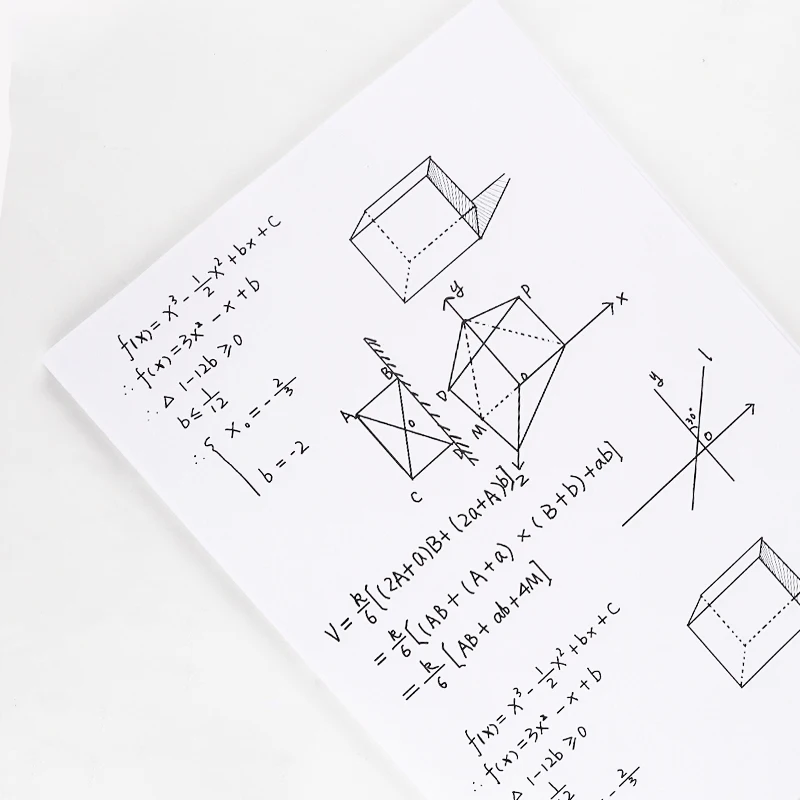 f(x) = x³ - 1/2 x² + bx + C
∴ f(x) = 3x² - x + b
∴ △ 1-12b ≥ 0
b ≤ 1/12
∴ { x₀ = - 2/3
b = -2
y
P
x
B
A
o
D
C
D
M
o
Z
l
y
30°
O
V = k/6 [(2A+a)B + (2a+A)b]
= k/6 [(AB + (A+a) × (B+b) + ab]
= k/6 [AB + ab + 4M]
f(x) = x³ - 1/2 x² + bx + C
∴ f(x) = 3x² - x + b
△ 1-12b ≥ 0
1/12
- 2/3